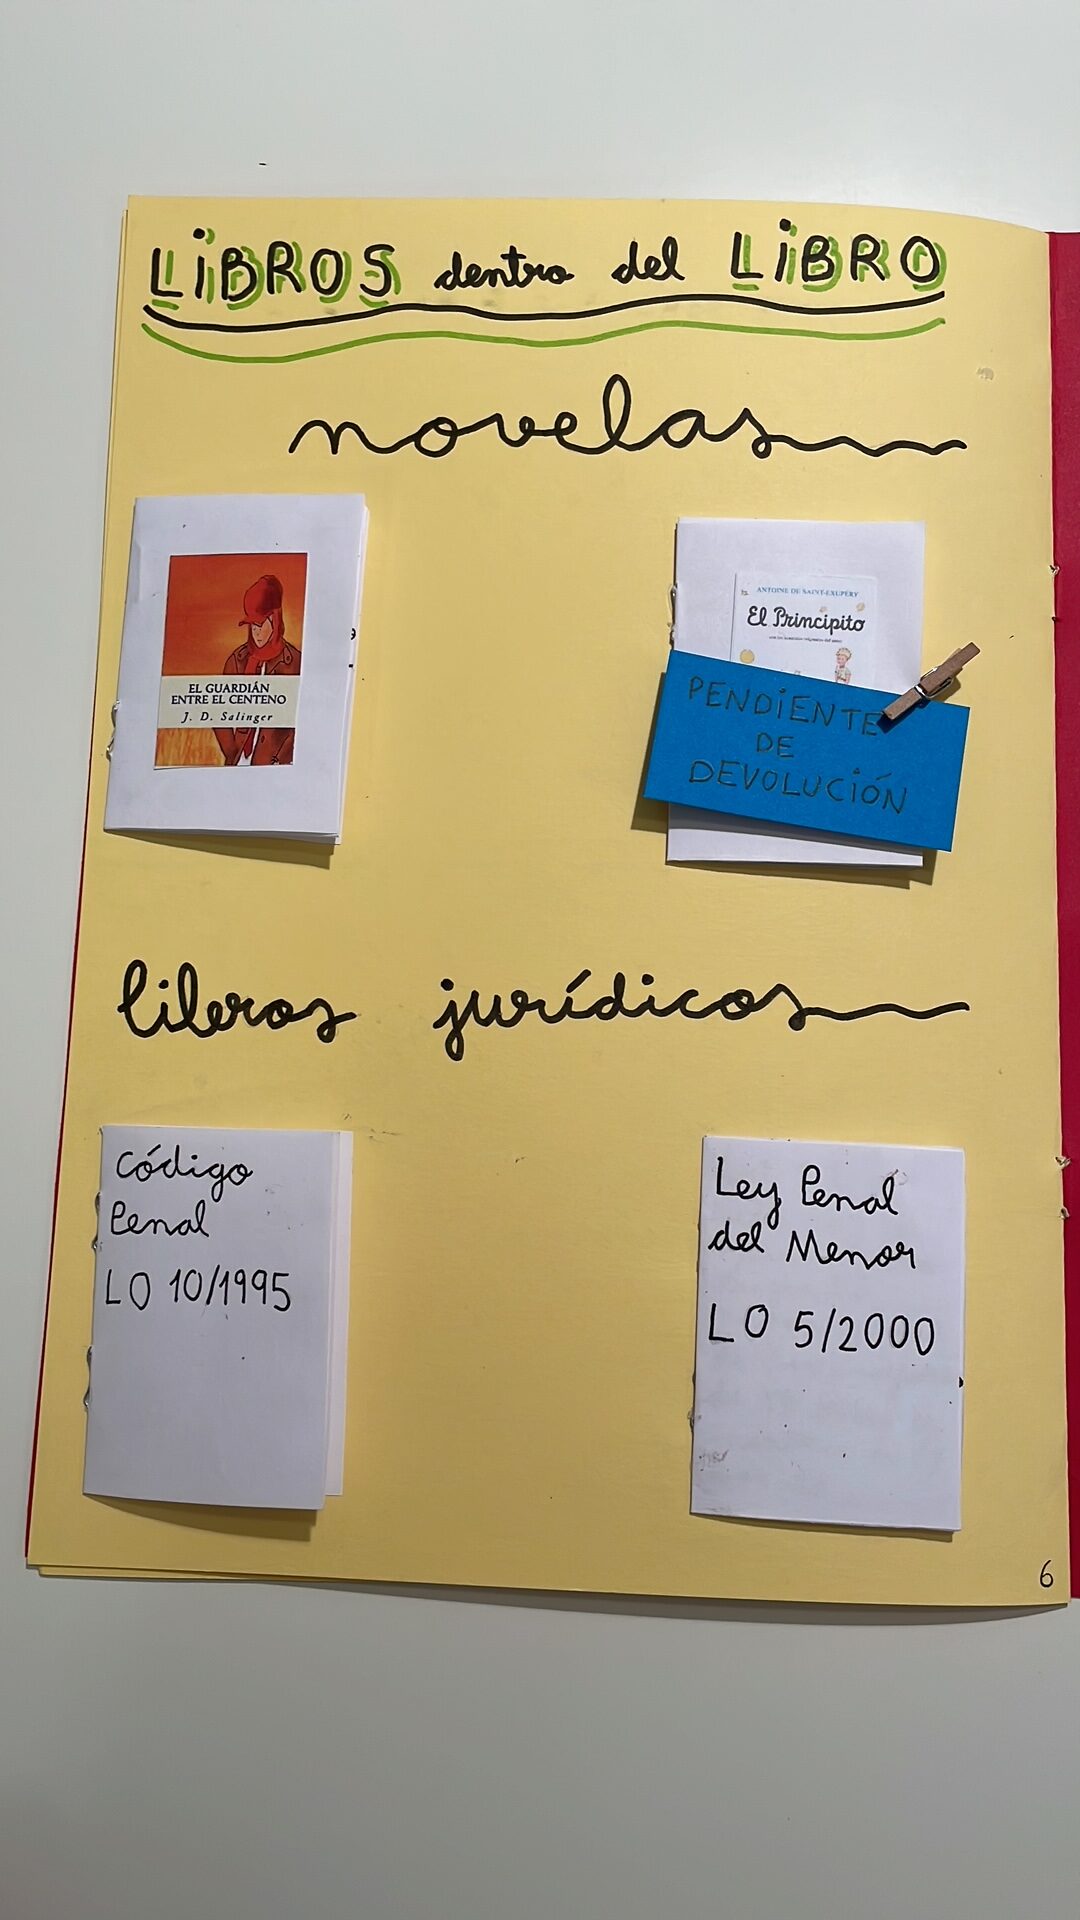 LiBROS dentro del LiBRO
novelas
EL GUARDIÁN
ENTRE EL CENTENO
J. D. Salinger
ANTOINE DE SAINT-EXUPÉRY
El Principito
PENDiENTE
DE
DEVOLUCiÓN
libros jurídicos
Código
Penal
LO 10/1995
Ley Penal
del Menor
LO 5/2000
6